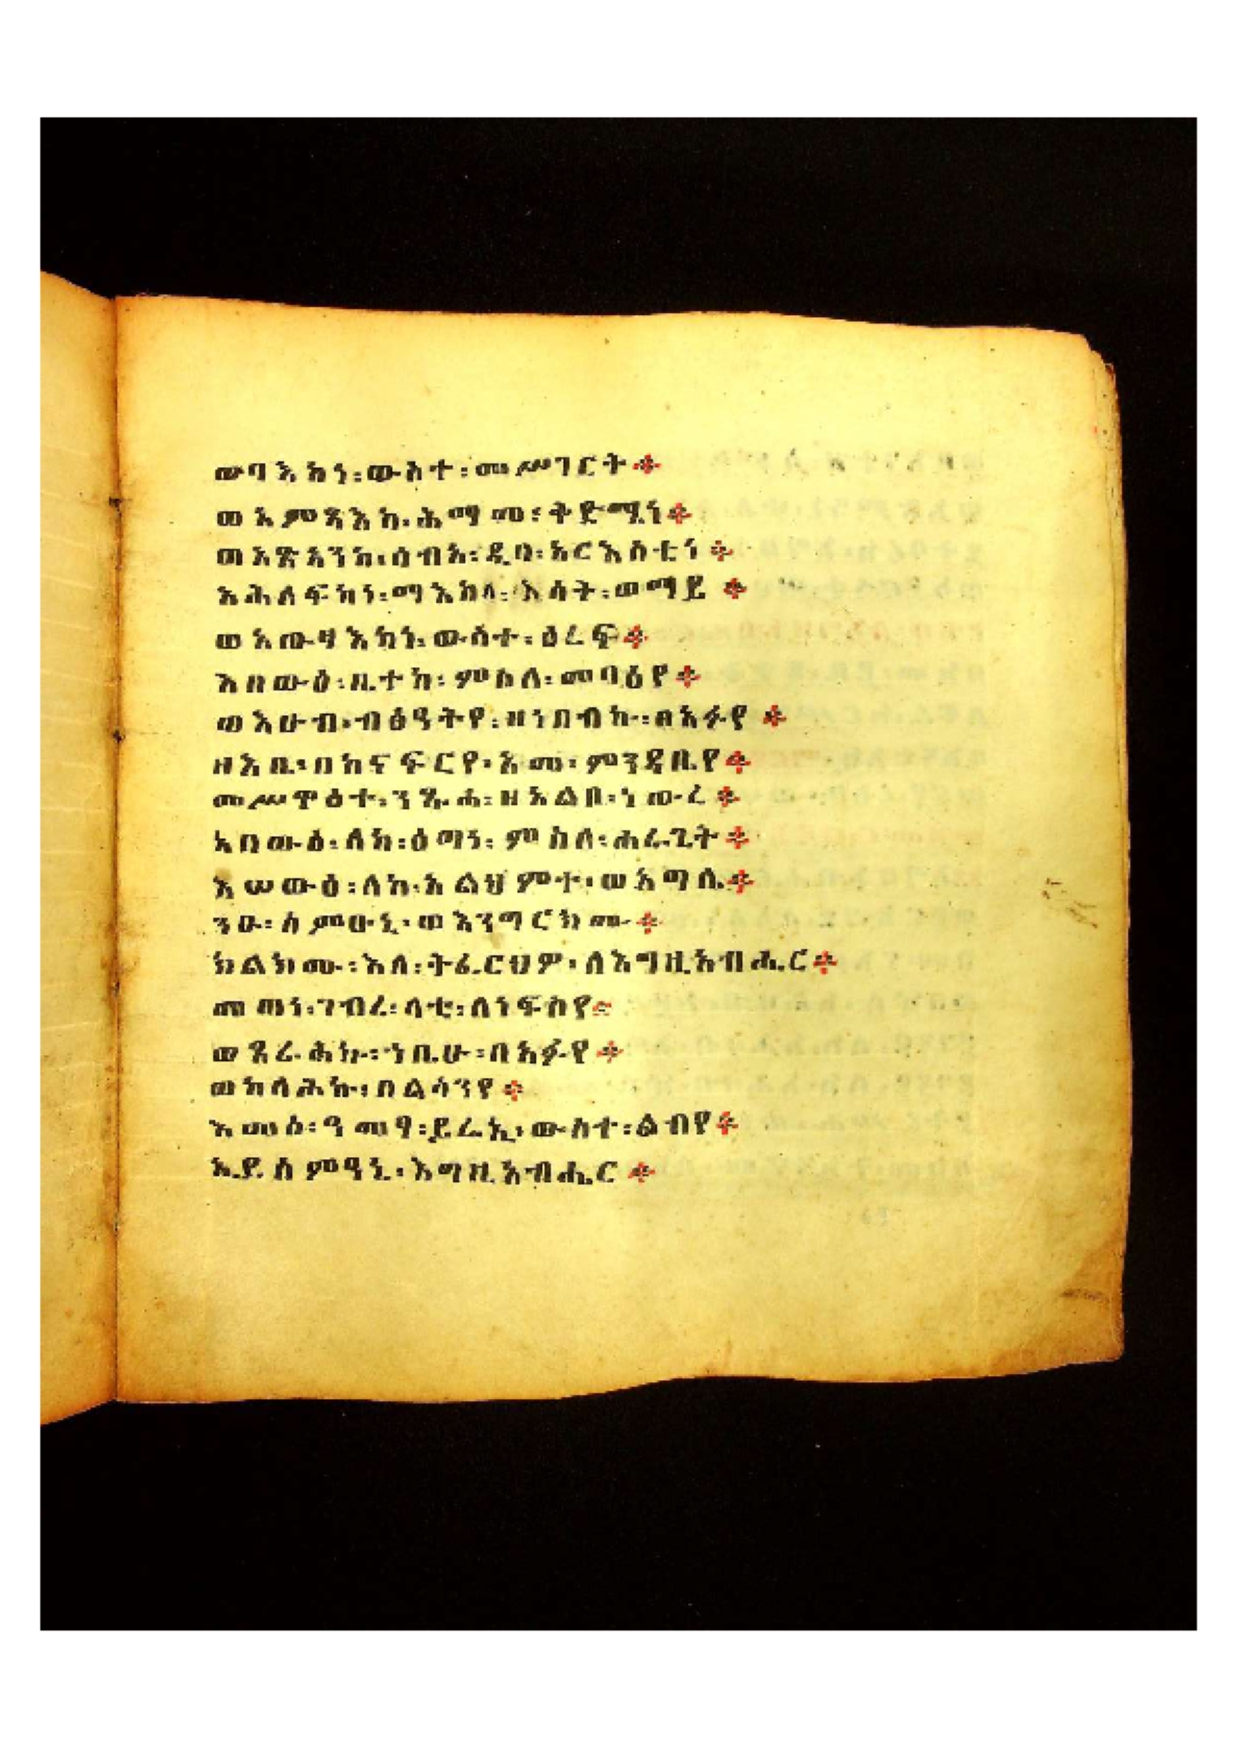 ወባእከነ፡ውስተ፡መሥገርት፨
ወአምጻእከ፡ሕማመ፡ቅድሜነ፨
ወአጽአንከ፡ሰብአ፡ዲበ፡አርእስቲነ፨
አሕለፍከነ፡ማእከለ፡እሳት፡ወማይ፨
ወአውፃእከነ፡ውስተ፡ዕረፍ፨
እበውዕ፡ቤተከ፡ምስለ፡መባዕየ፨
ወእሁብ፡ብፅዓትየ፡ዘነበብኩ፡በአፉየ፨
ዘእቤ፡በከናፍርየ፡አመ፡ምንዳቤየ፨
መሥዋዕተ፡ንጹሐ፡ዘአልቦ፡ነውረ፨
አበውዕ፡ለከ፡ዕጣነ፡ምስለ፡ሐራጊት፨
እሠውዕ፡ለከ፡አልህምተ፡ወአጣሊ፨
ንዑ፡ስምዑኒ፡ወእንግርክሙ፨
ክልክሙ፡እለ፡ትፈርህዎ፡ለእግዚአብሔር፨
መጠነ፡ገብረ፡ላቲ፡ለነፍስየ፨
ወጸራሕኩ፡ኀቤሁ፡በአፉየ፨
ወከላሕኩ፡በልሳንየ፨
እመሰ፡ዓመፃ፡ይሬኢ፡ውስተ፡ልብየ፨
ኢይስምዓኒ፡እግዚአብሔር፨